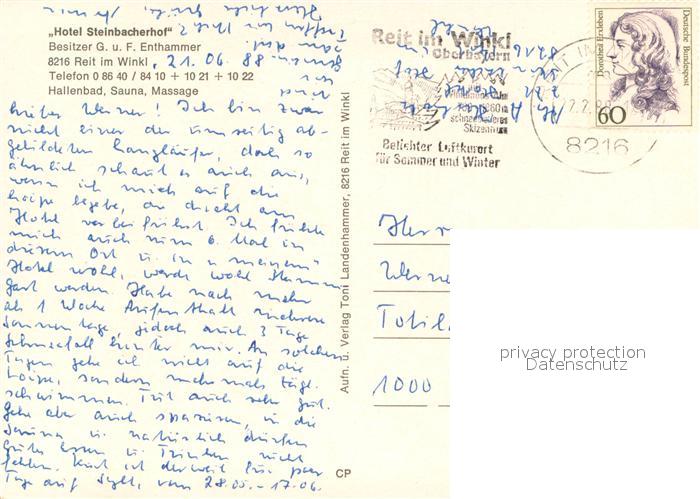 „Hotel Steinbacherhof“
Besitzer G. u. F. Enthammer
8216 Reit im Winkl, 21.06.88
Telefon 0 86 40 / 84 10 + 10 21 + 10 22
Hallenbad, Sauna, Massage
Lieber Werner! Ich bin zwar
nicht einer der umseitig ab-
gebildeten Langläufer, doch so
ähnlich schaut es auch aus,
wenn ich mich auf die
Loipe begebe, die direkt am
Hotel vorbeiführt. Ich fühle
mich auch zum 6. Mal in
diesem Ort u. in meinem
Hotel wohl, werde wohl Stamm
gast werden. Habe nach mehr
als 1 Woche Aufenthalt mehrere
Sonnentage, jedoch auch 3 Tage
Schneefall hinter mir. An solchen
Tagen gehe ich nicht auf die
Loipe, sondern mehrmals tägl.
schwimmen. Tut auch sehr gut.
Gehe aber auch spazieren, in die
Sauna u. natürlich dürfen
gutes Essen u. Trinken nicht
fehlen. Kurt ist derweil für paar
Tage auf Sylt, vom 28.05.-17.06.
Aufn. u. Verlag Toni Landenhammer, 8216 Reit im Winkl
CP
Reit im Winkl
Oberbayern
schneesicheres
Skizentrum
Beliebter Luftkurort
für Sommer und Winter
8216
Dorothea Erxleben
Deutsche Bundespost
60
Herr
Werne
Tobil
1000
privacy protection
Datenschutz